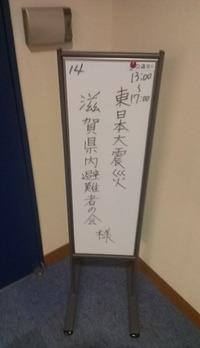 14
13:00
~
17:00
東日本大震災
滋賀県内避難者の会
様